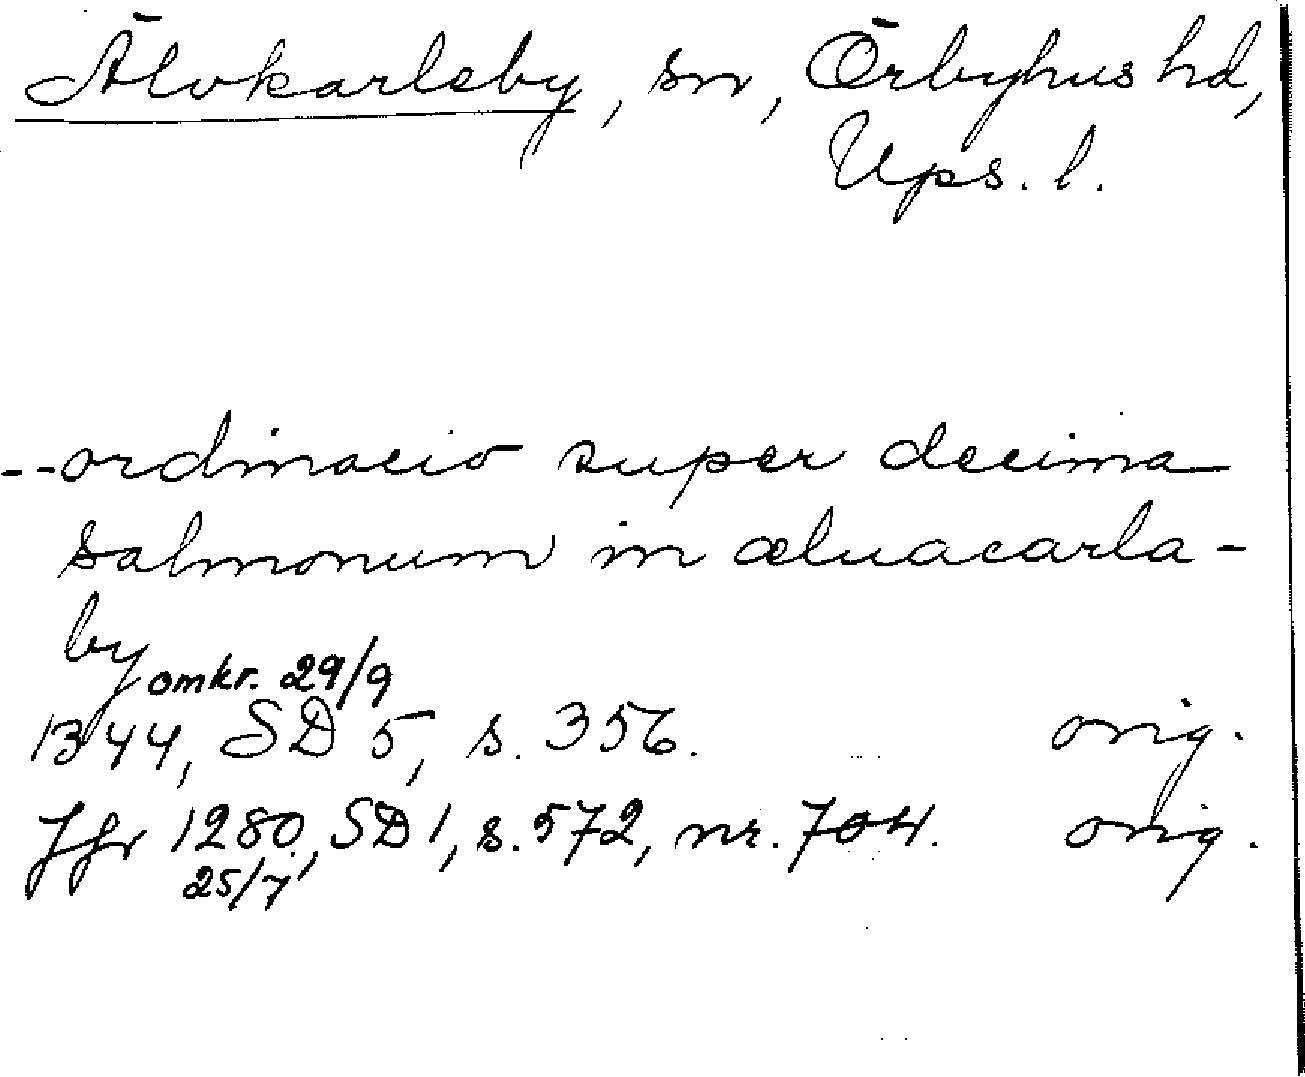 Älvkarleby, sn, Örbyhus hd,
Ups. l.
--ordinacio super decima
salmonum in æluacarla-
by omkr. 29/9
1344, SD 5, s. 356. orig.
Jfr 1280, SD 1, s. 572, nr. 704. orig.
25/7